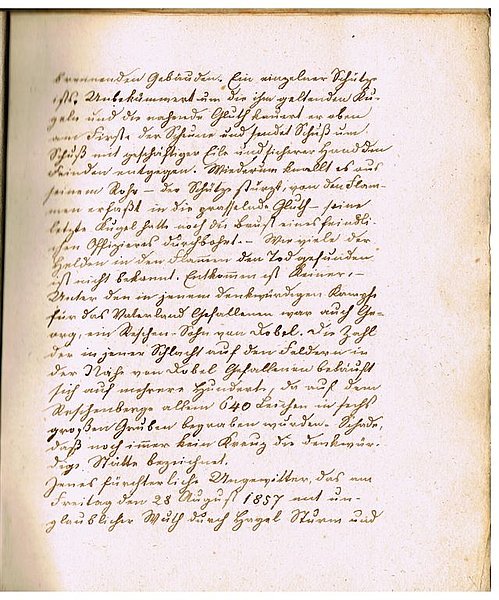 brennenden Gebäuden. Ein einzelner Schütze
ists. Unbekümmert um die ihn geltenden Ku-
geln und die nahende Gluth kauert er oben
am Firste der Scheune und sendet Schuß um
Schuß mit geschäftiger Eile und sicherer Hand den
Feinden entgegen. Wiederum knallt es aus
seinem Rohr – der Schütze stürzt, von den Flam-
men erfaßt in die prasselnde Gluth – seine
letzte Kugel hatte noch die Brust eines feindli-
chen Offizieres durchbohrt. – Wie viele der
Helden in den Flammen den Tod gefunden
ist nicht bekannt. Entkommen ist Keiner. –
Unter den in jenem denkwürdigen Kampfe
für das Vaterland Gefallenen war auch Ge-
org, ein Reschen-Sohn von Dobel. Die Zahl
der in jener Schlacht auf den Feldern in
der Nähe von Dobel Gefallenen belauft
sich auf mehrere Hunderte, da auf dem
Reschenberge allein 640 Leichen in sechs
großen Gruben begraben wurden. Schade,
daß noch immer kein Kreuz die denkwür-
dige Stätte bezeichnet.
Jenes fürchterliche Ungewitter, das am
Freitag den 28 August 1857 mit un-
glaublicher Wuth durch Hagel Sturm und